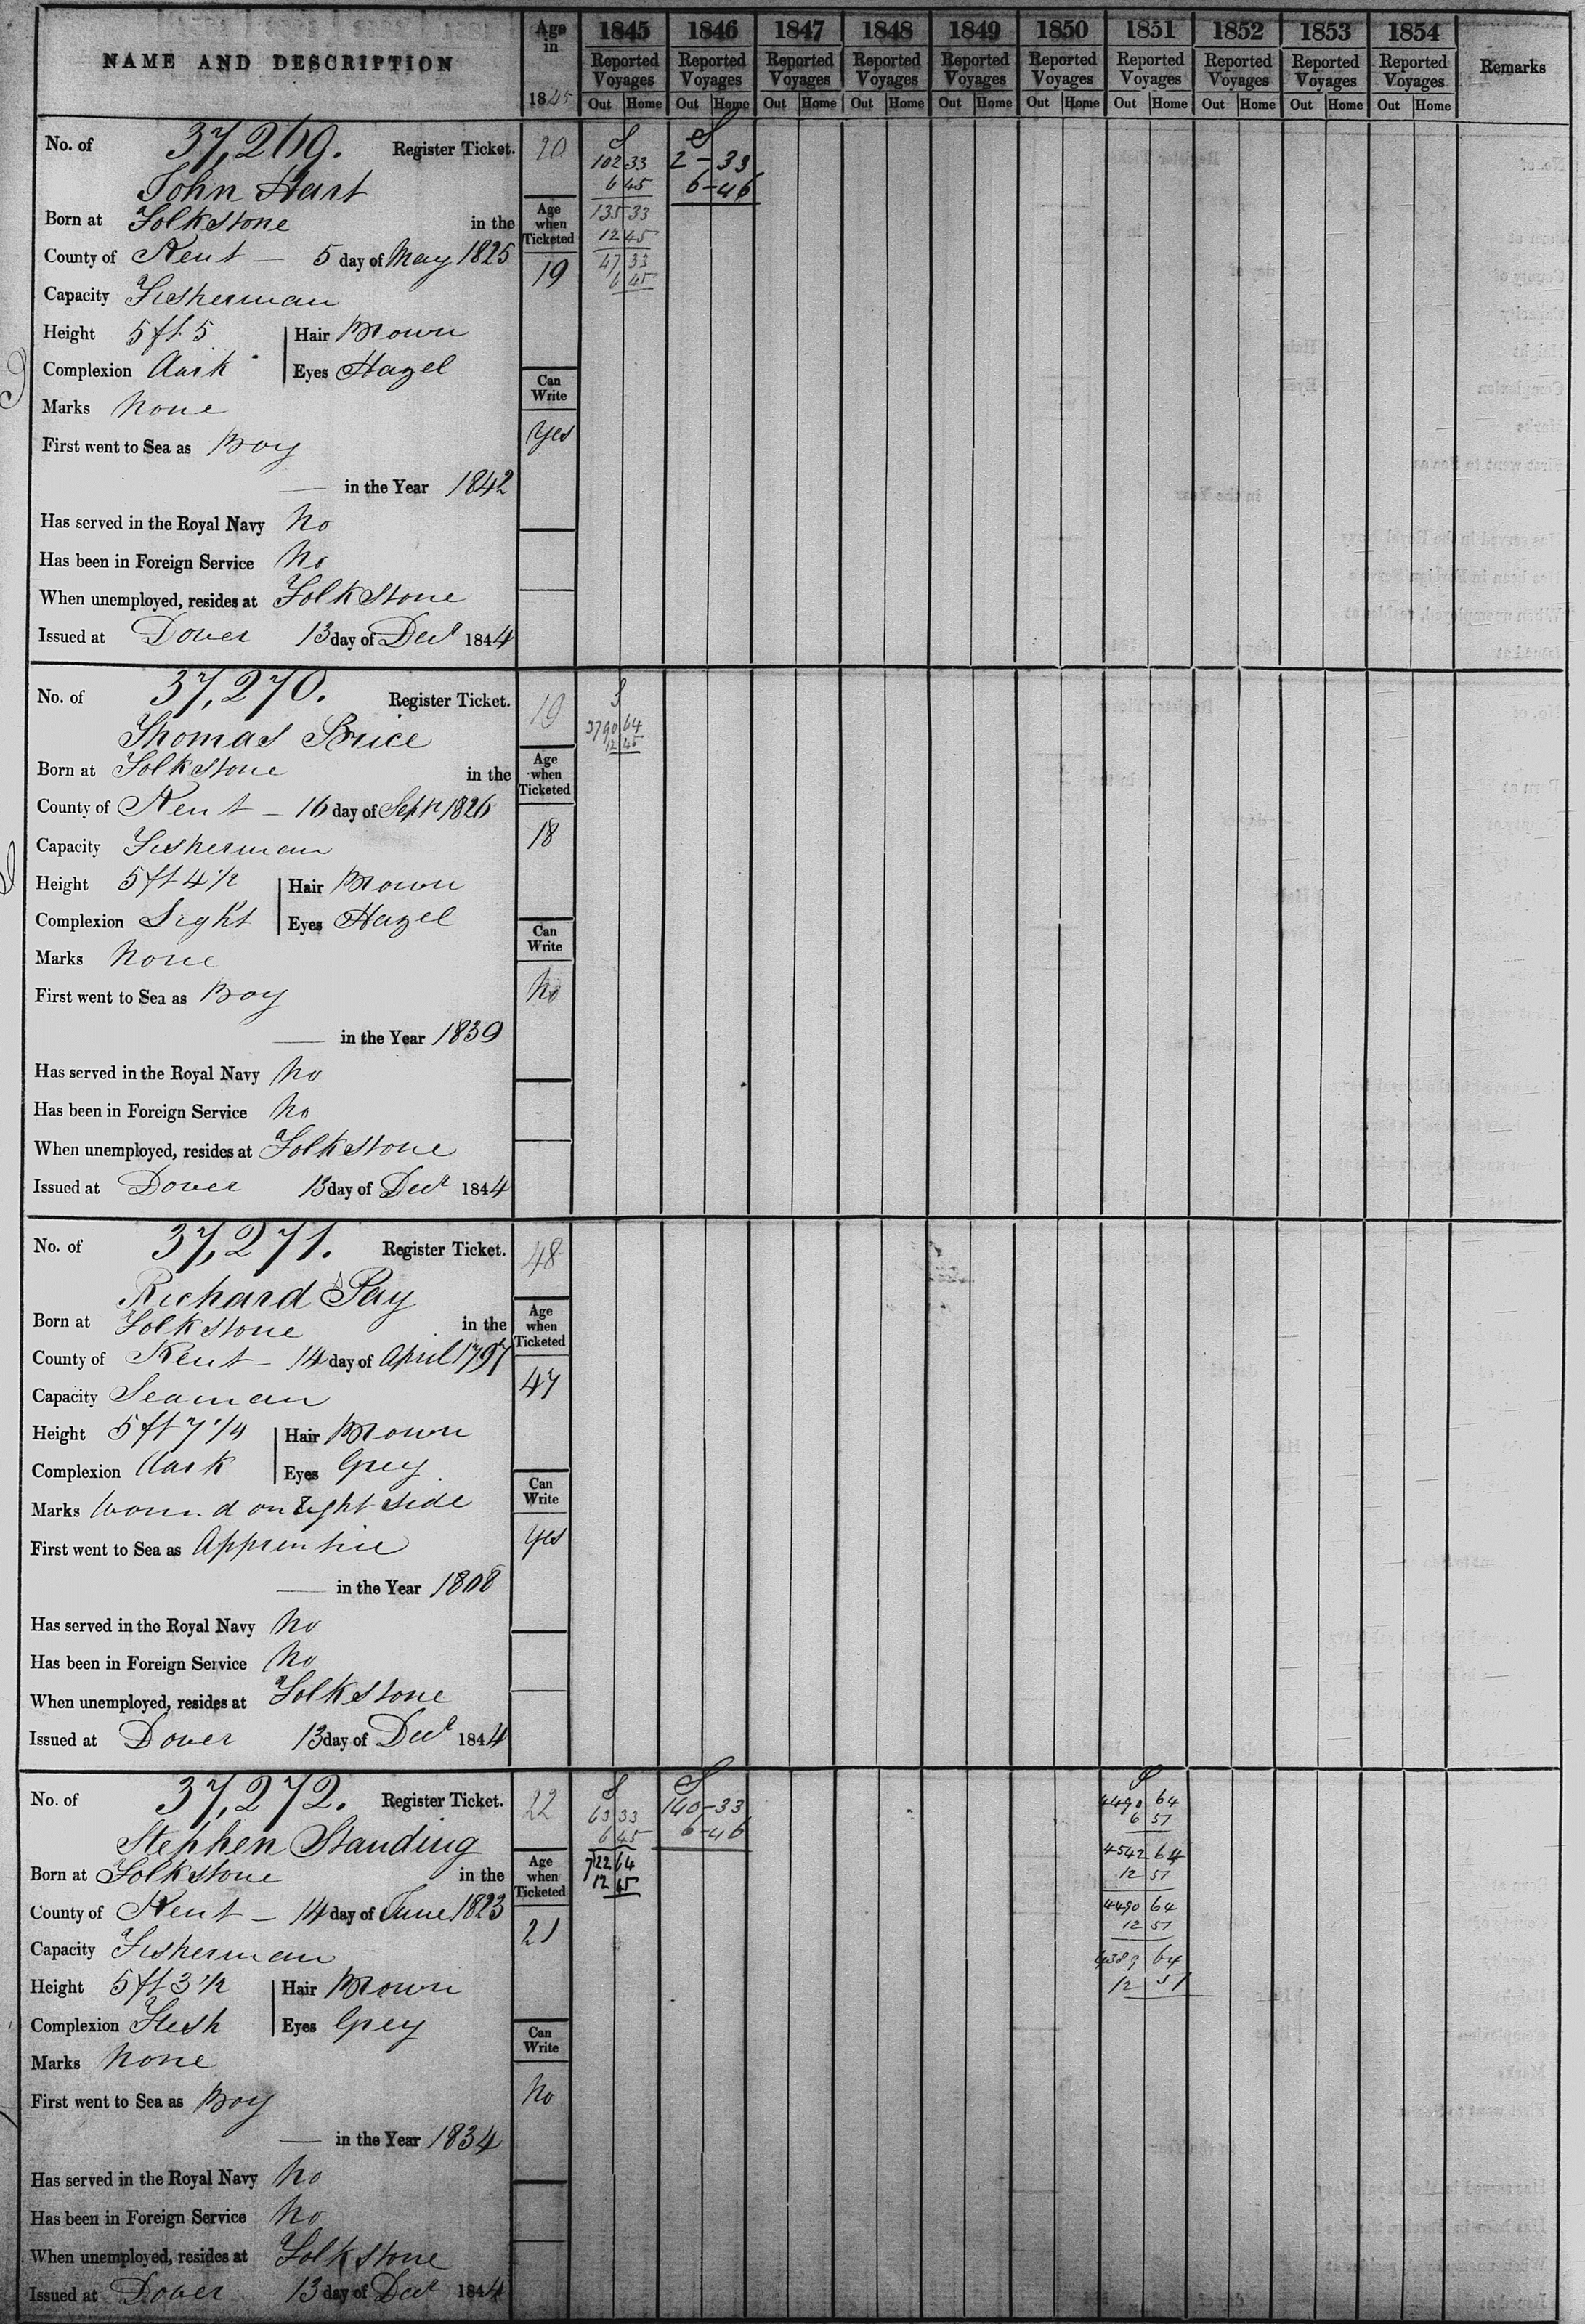 NAME AND DESCRIPTION
Age in 1845
1845 1846 1847 1848 1849 1850 1851 1852 1853 1854
Reported Voyages Reported Voyages Reported Voyages Reported Voyages Reported Voyages Reported Voyages Reported Voyages Reported Voyages Reported Voyages Reported Voyages Remarks
Out Home Out Home Out Home Out Home Out Home Out Home Out Home Out Home Out Home Out Home
No. of 37,269. Register Ticket. 20
John Hart
Born at Folkstone in the
County of Kent — 5 day of May 1825
Capacity Fisherman
Height 5 ft 5 Hair Brown
Complexion Dark Eyes Hazel
Marks None
First went to Sea as Boy
— in the Year 1842
Has served in the Royal Navy No
Has been in Foreign Service No
When unemployed, resides at Folkstone
Issued at Dover 13 day of Decr 1844
Age when Ticketed
19
Can Write
Yes
S
102 33
6 45
135 33
12 45
47 33
6 45
S
2 - 33
6 - 46
No. of 37,270. Register Ticket. 19
Thomas Brice
Born at Folkstone in the
County of Kent — 16 day of Septr 1826
Capacity Fisherman
Height 5 ft 4 1/2 Hair Brown
Complexion Light Eyes Hazel
Marks None
First went to Sea as Boy
— in the Year 1839
Has served in the Royal Navy No
Has been in Foreign Service No
When unemployed, resides at Folkstone
Issued at Dover 13 day of Decr 1844
Age when Ticketed
18
Can Write
No
S
3790 64
12 45
No. of 37,271. Register Ticket. 48
Richard Pay
Born at Folkstone in the
County of Kent — 14 day of April 1797
Capacity Seaman
Height 5 ft 7 1/4 Hair Brown
Complexion Dark Eyes Grey
Marks Wound on right side
First went to Sea as Apprentice
— in the Year 1808
Has served in the Royal Navy No
Has been in Foreign Service No
When unemployed, resides at Folkstone
Issued at Dover 13 day of Decr 1844
Age when Ticketed
47
Can Write
Yes
No. of 37,272. Register Ticket. 22
Stephen Standing
Born at Folkstone in the
County of Kent — 14 day of June 1823
Capacity Fisherman
Height 5 ft 3 1/2 Hair Brown
Complexion Fresh Eyes Grey
Marks None
First went to Sea as Boy
— in the Year 1834
Has served in the Royal Navy No
Has been in Foreign Service No
When unemployed, resides at Folkstone
Issued at Dover 13 day of Decr 1844
Age when Ticketed
21
Can Write
No
S
63 33
6 45
722 64
12 45
S
140 - 33
6 - 46
S
4490 64
6 51
4542 64
12 51
4490 64
12 51
4389 64
12 51